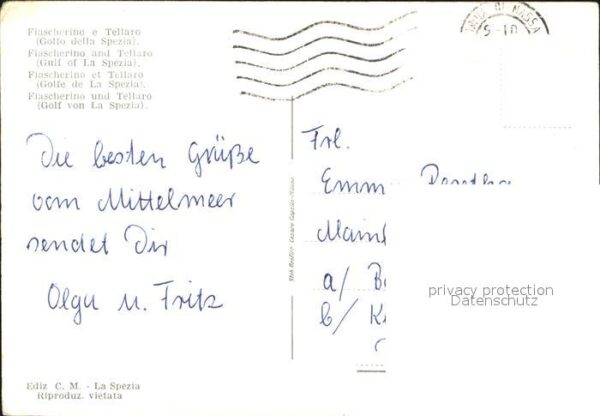 Fiascherino e Tellaro
(Golfo della Spezia).
Fiascherino and Tellaro
(Gulf of La Spezia).
Fiascherino et Tellaro
(Golfe de La Spezia).
Fiascherino und Tellaro
(Golf von La Spezia).
Die besten Grüße
vom Mittelmeer
sendet Dir
Olga u. Fritz
Ediz C. M. - La Spezia
Riproduz. vietata
MASSA
Frl.
a/
b/
privacy protection
Datenschutz